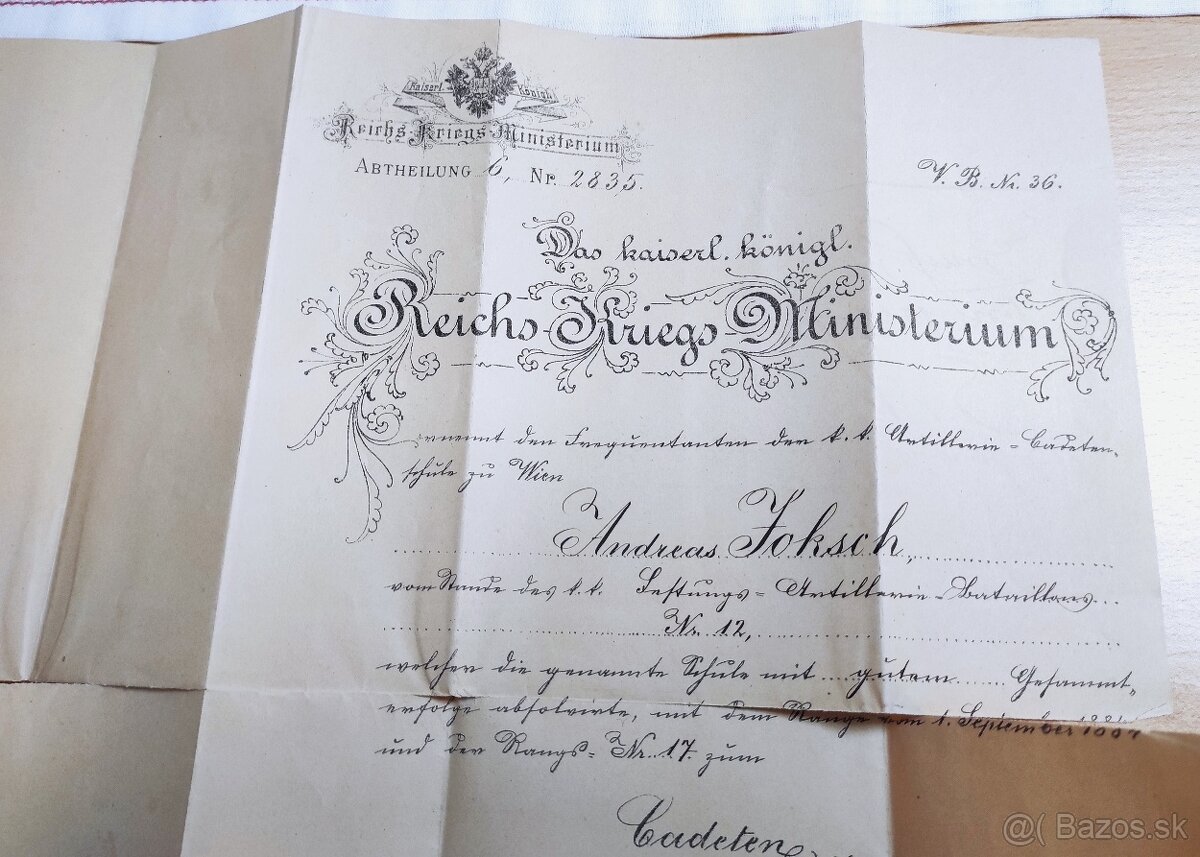 Kaiserl. Königl.
Reichs-Kriegs-Ministerium
ABTHEILUNG 6, Nr. 2835.
V. B. Nr. 36.
Das kaiserl. königl.
Reichs-Kriegs-Ministerium
ernennt den Frequentanten der k. k. Artillerie-Cadeten-
schule zu Wien
Andreas Joksch,
vom Stande des k. k. Festungs-Artillerie-Bataillons
Nr. 12,
welcher die genannte Schule mit gutem Gesammt-
erfolge absolvirte, mit dem Range vom 1. September
und der Rangs-Nr. 17. zum
Cadeten
@( Bazos.sk